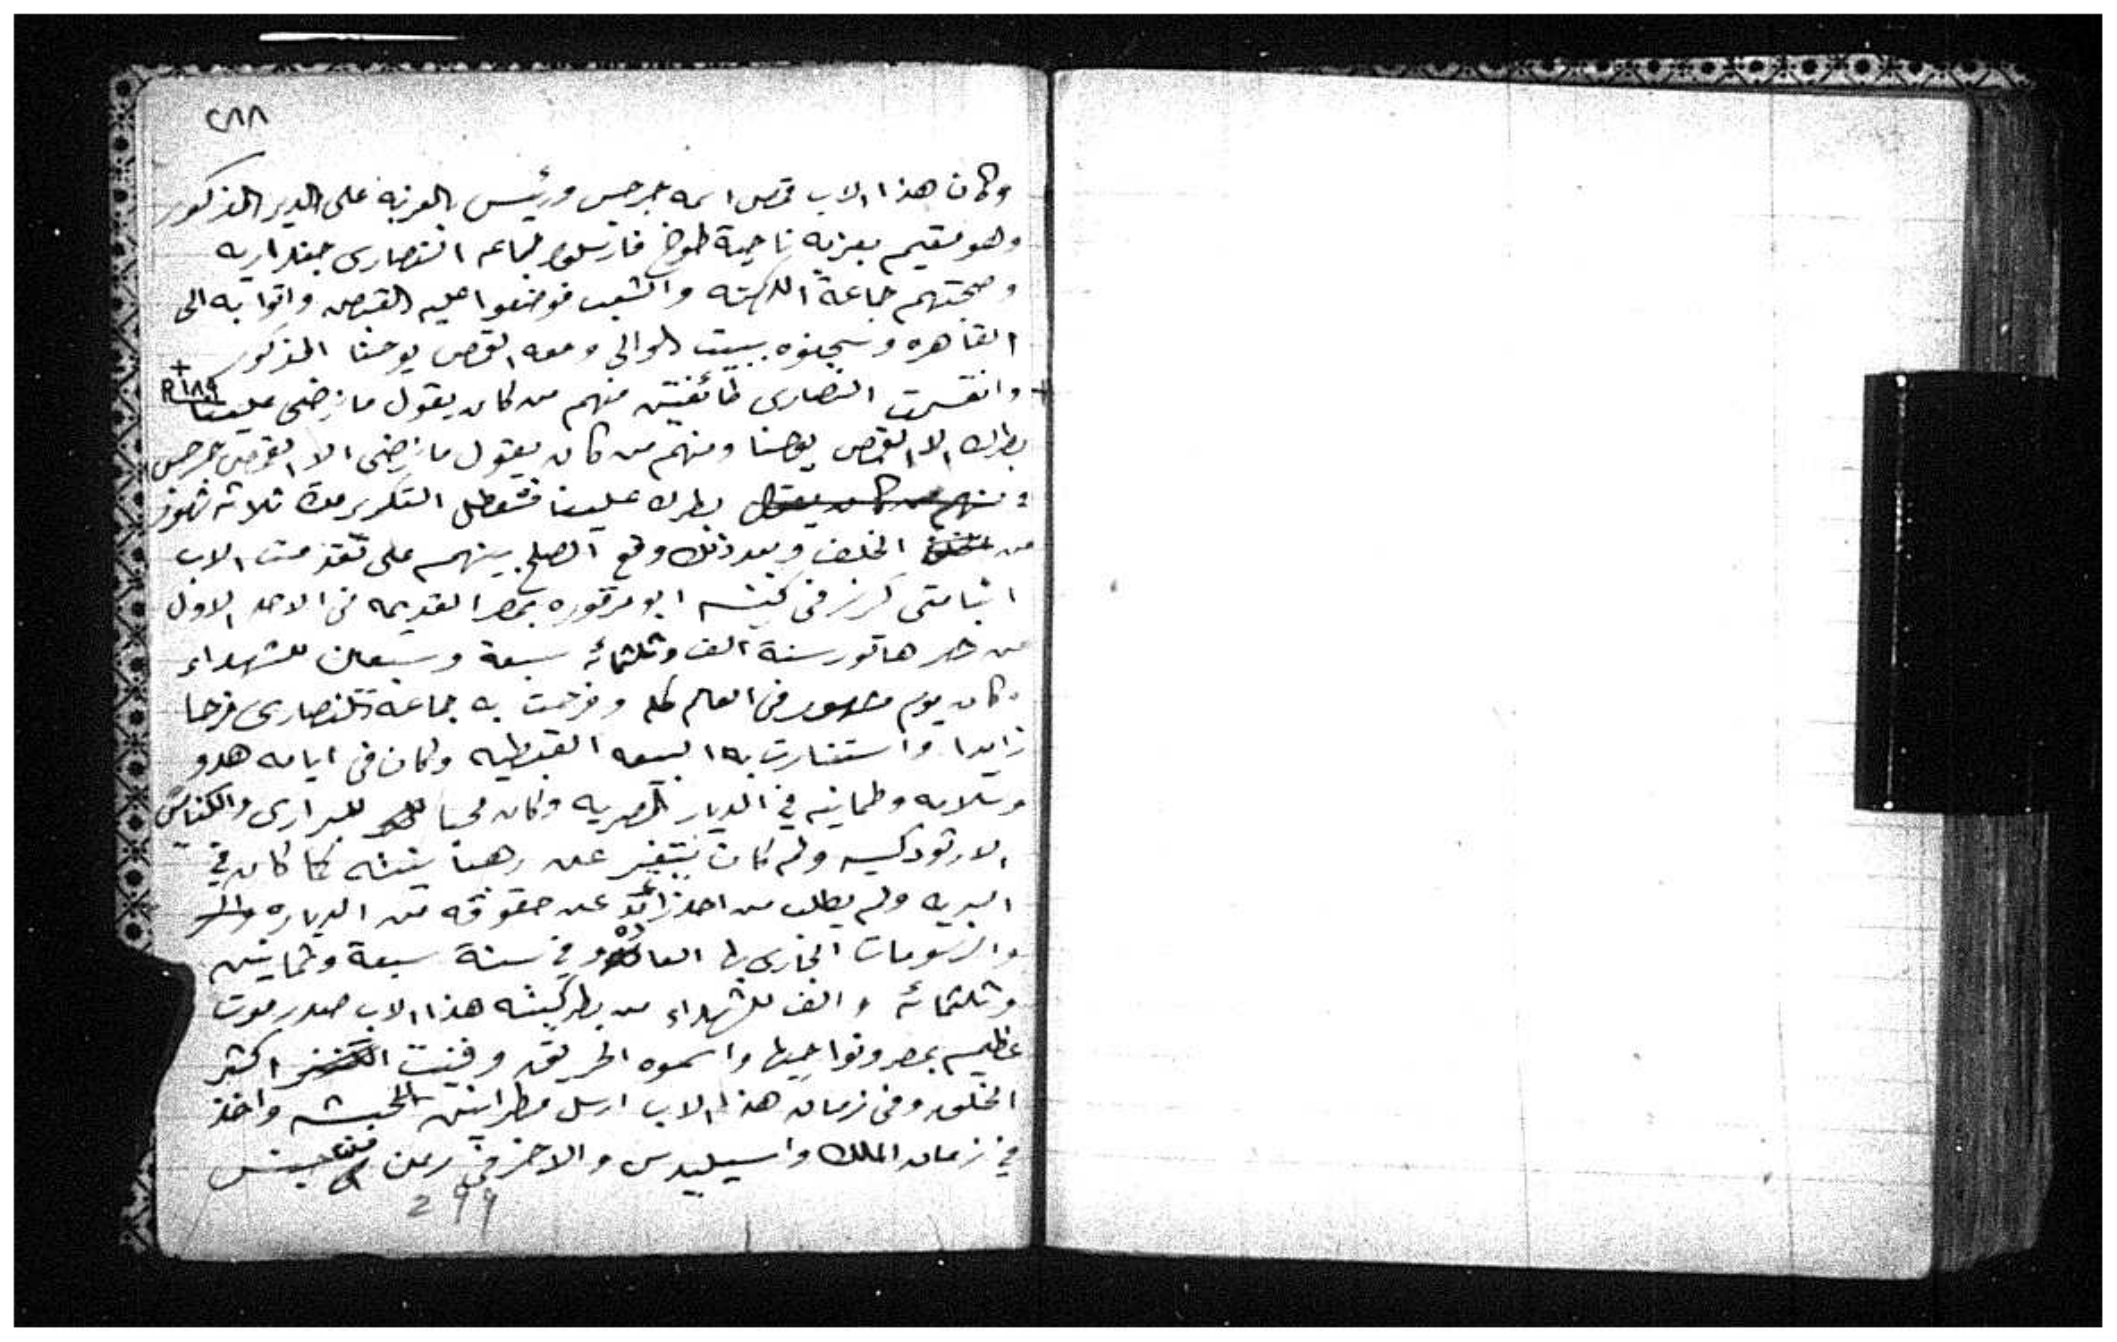 ٢٨٨
وكان هذا الاب قمص اسمه جرجس ورئيس بالعزبه على الدير المذكور
وهو مقيم بعزبه ناحية طوخ فارسلوا جماعه النصارى جنداريه
وصحبتهم جماعة الكهنه والشعب فوضعوا عليه القبض واتوا به الى
القاهره وسجنوه ببيت الوالي ومعه القمص يوحنا المذكور
+ وانقسمت النصارى طائفتين منهم من كان يقول ما نرضى علينا + P ١٨٩
بطرك الا القمص يوحنا ومنهم من كان يقول ما نرضى الا القمص جرجس
منهم من كان يقول بطرك علينا فتعطل التكريز مدة ثلاثه شهور
من الخلف وبعد ذلك وقع الصلح بينهم على تقدمت الاب
انبا متى كرز في كنيسه ابو مرقوره بمصر القديمه في الاحد الاول
من شهر هاتور سنة الف وثلثمائه سبعة وسبعين للشهداء
وكان يوم مشهور في العالم كله وفرحت به جماعة النصارى فرحا
زايدا واستنارت به البيعه القبطيه وكان في ايامه هدو
وسلامه وطمانينه في الديار المصريه وكان محبا للبرارى والكنائس
الارتودكسيه ولم كان يتغير عن رهبنته كما كان في
البريه ولم يطلب من احد زائد عن حقوقه من الدياره
والرسومات الجارى بها العاده وفي سنة سبعة وثمانين
وثلثمائه والف للشهداء من بطركيته هذا الاب صدر موت
عظيم بمصر ونواحيها واسموه الحريق وفنيت اكثر
الخلق وفي زمان هذا الاب ارسل مطرانين للحبشه واخذ
في زمان الملك واسيليدس والاخر في زمن
299